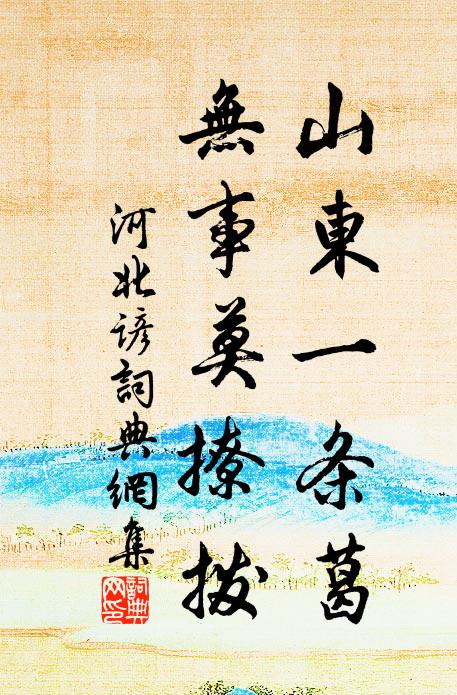 山東一条葛
無事莫撩拨
河北諺詞典網集
詞典网印